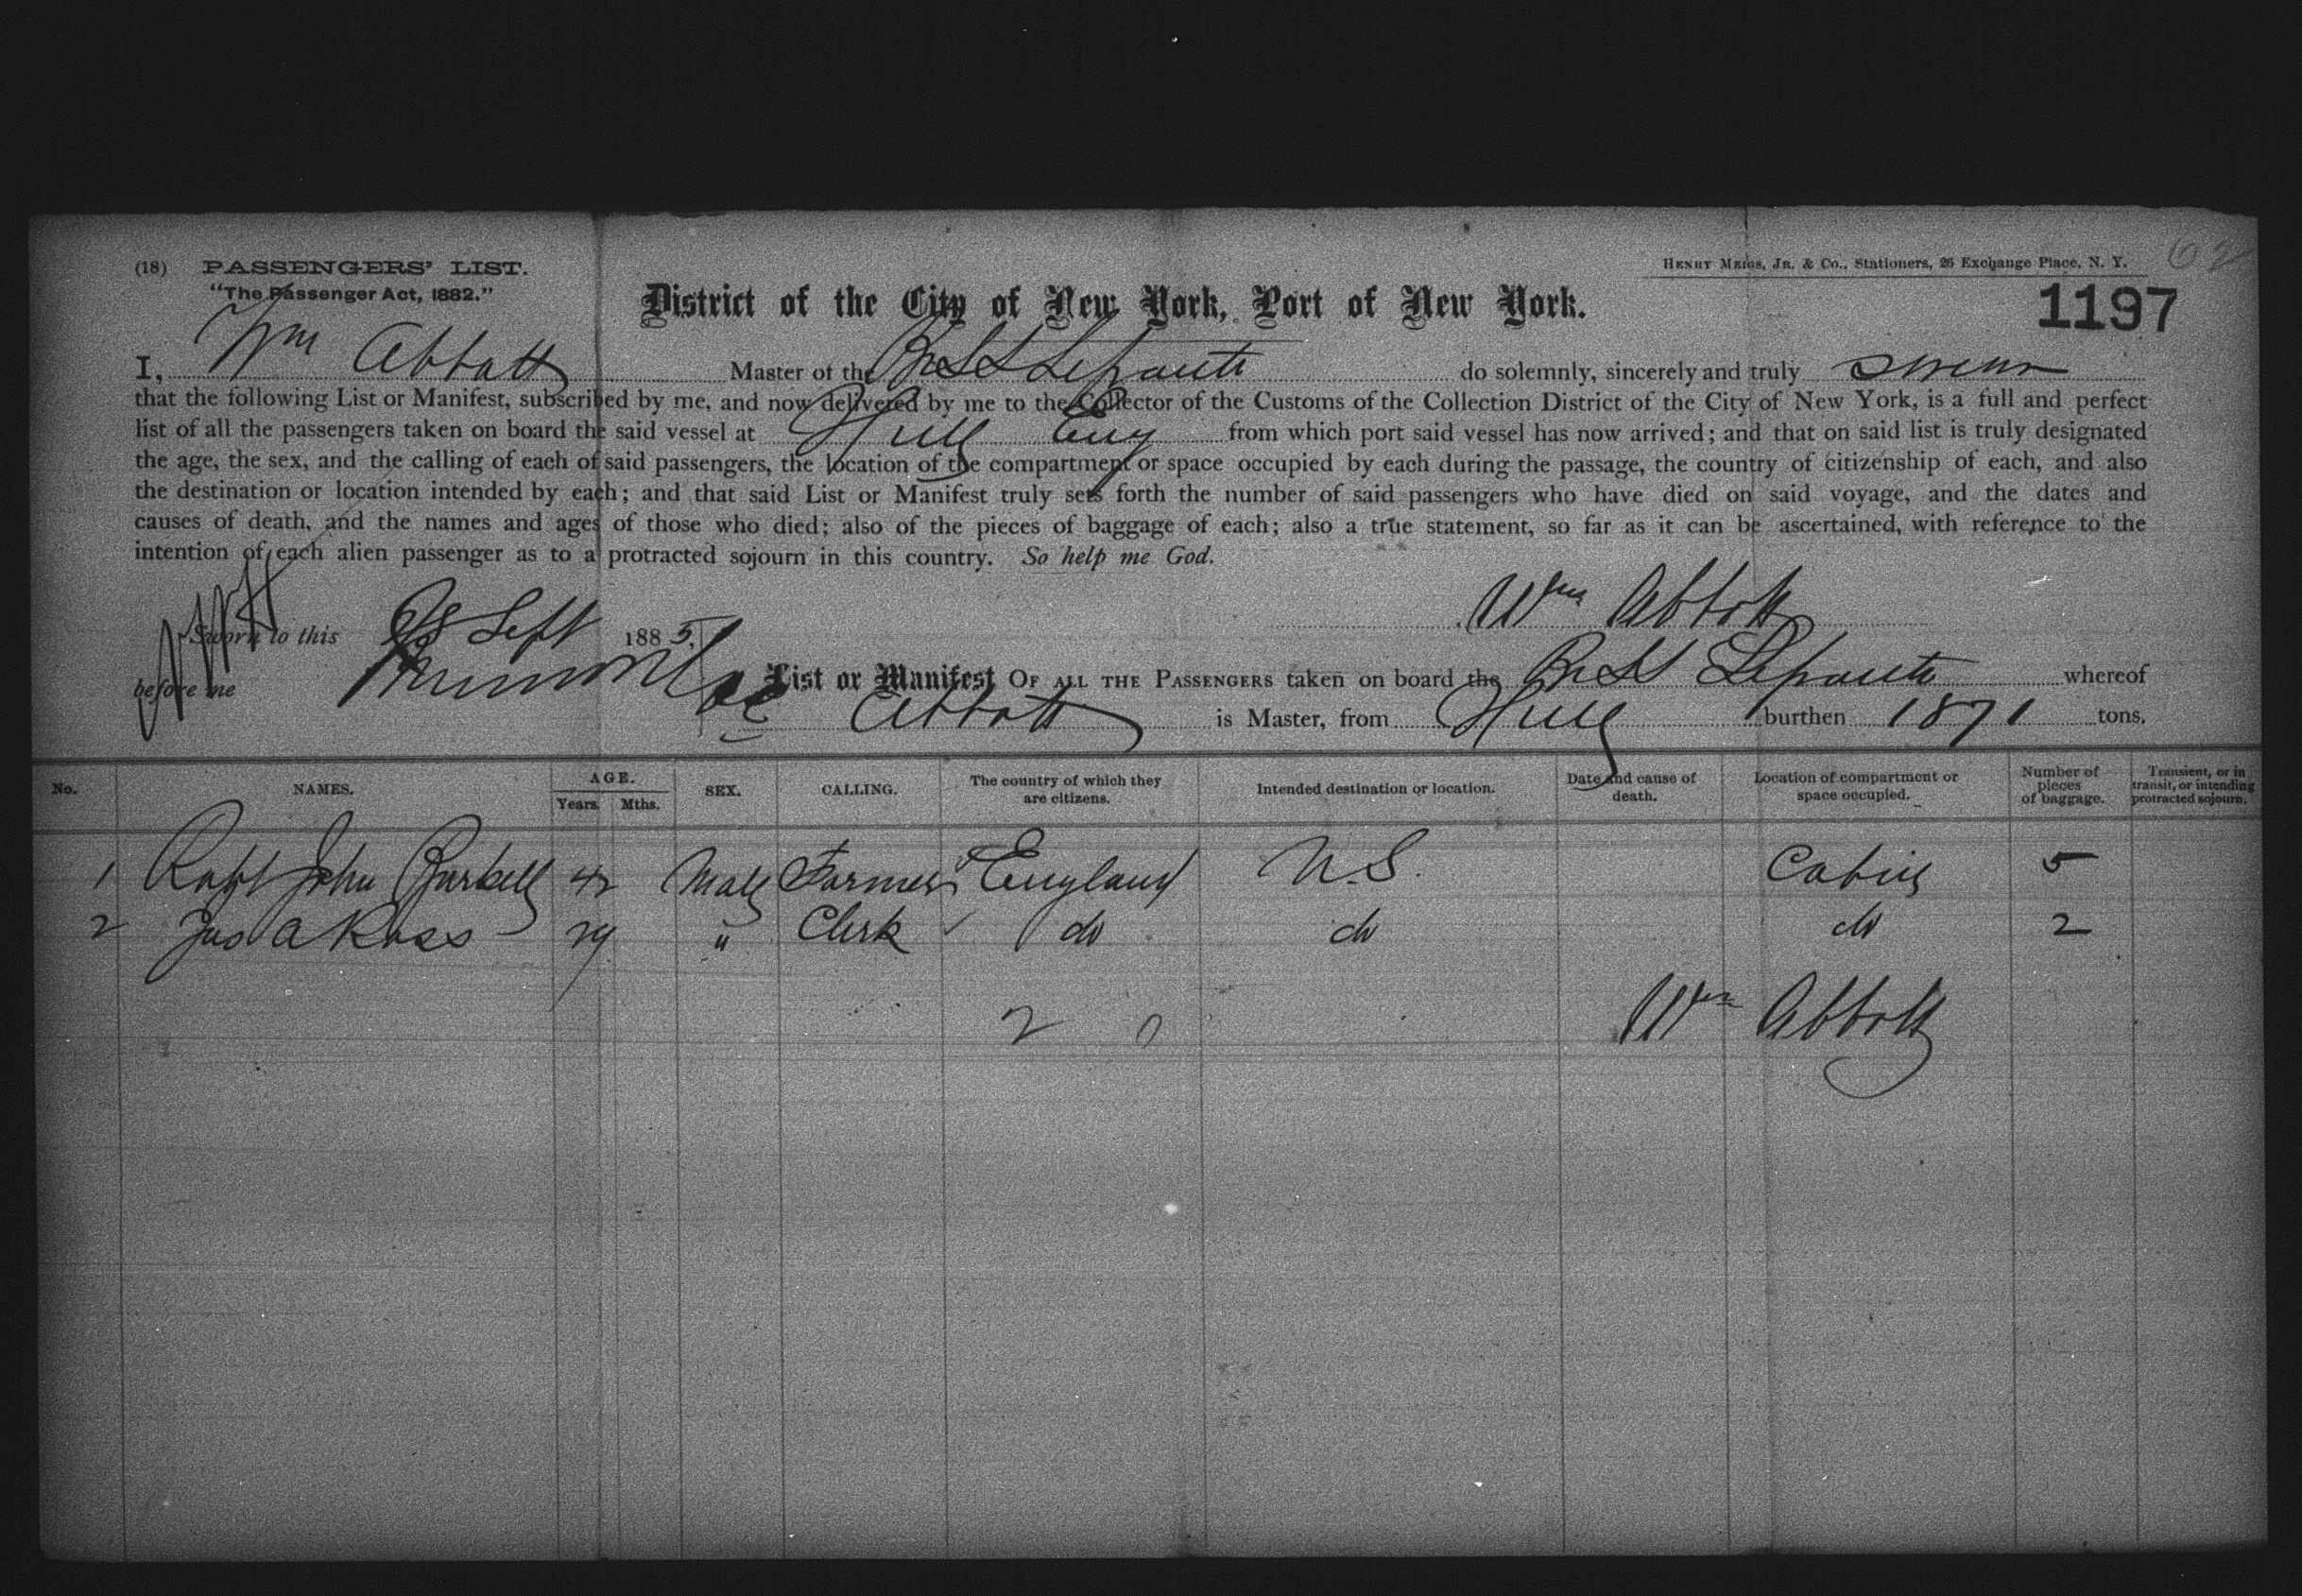 (18) PASSENGERS' LIST.
HENRY MEIGS, JR. & CO., Stationers, 26 Exchange Place, N. Y. 62
"The Passenger Act, 1882."
District of the City of New York, Port of New York.
1197
I, Wm Abbott Master of the Br SS Lepanto do solemnly, sincerely and truly swear
that the following List or Manifest, subscribed by me, and now delivered by me to the Collector of the Customs of the Collection District of the City of New York, is a full and perfect
list of all the passengers taken on board the said vessel at Hull Eng from which port said vessel has now arrived; and that on said list is truly designated
the age, the sex, and the calling of each of said passengers, the location of the compartment or space occupied by each during the passage, the country of citizenship of each, and also
the destination or location intended by each; and that said List or Manifest truly sets forth the number of said passengers who have died on said voyage, and the dates and
causes of death, and the names and ages of those who died; also of the pieces of baggage of each; also a true statement, so far as it can be ascertained, with reference to the
intention of each alien passenger as to a protracted sojourn in this country. So help me God.
Wm Abbott
Sworn to this 28 Sept 1885.
before me
List or Manifest OF ALL THE PASSENGERS taken on board the Br SS Lepanto whereof
Abbott is Master, from Hull burthen 1871 tons.
No. NAMES. AGE. Years. Mths. SEX. CALLING. The country of which they are citizens. Intended destination or location. Date and cause of death. Location of compartment or space occupied. Number of pieces of baggage. Transient, or in transit, or intending protracted sojourn.
1 Robt John 42 Male Farmer England U.S. Cabin 5
2 Jno A Ross 29 " Clerk do do do 2
2 0 Wm Abbott